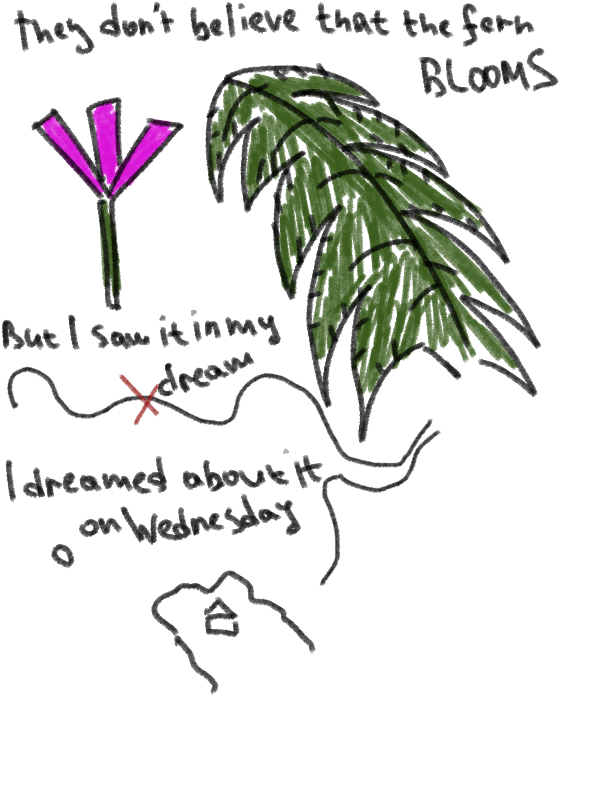 They don't believe that the fern
BLOOMS
But I saw it in my
dream
I dreamed about it
on Wednesday